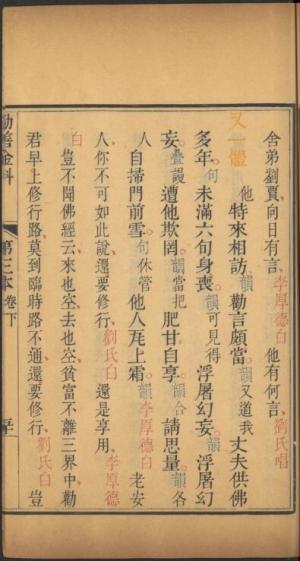 舍弟劉賈向日有言李厚德白他有何言劉氏唱
又一體
他特來相訪韻勸言頗當韻又道我丈夫供佛
多年句未滿六旬身喪韻可見得浮屠幻妄韻浮屠幻
妄疊謾遭他欺罔韻當把肥甘自享韻合請思量韻各
人自掃門前雪句休管他人瓦上霜韻李厚德白老安
人你不可如此說還要修行劉氏白還是享用李厚德
白豈不聞佛經云來也空去也空貧富不離三界中勸
君早上修行路莫到臨時路不通還要修行劉氏白豈
勸善金科
第三本卷下